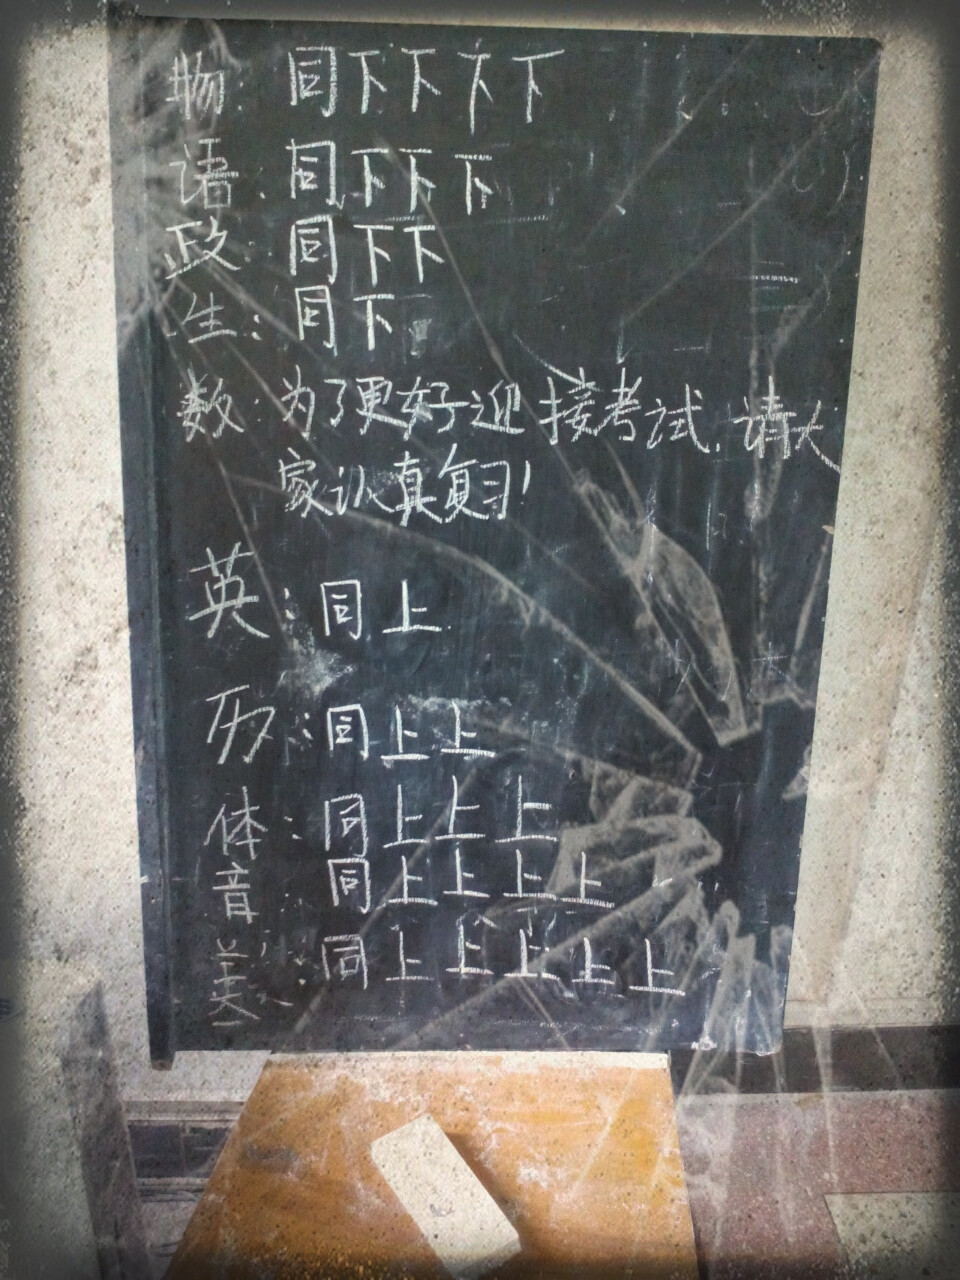 物：同下下下下
语：同下下下
政：同下下
生：同下
数：为了更好迎接考试，请大
家认真复习！
英：同上
历：同上上
体：同上上上
音：同上上上上
美：同上上上上上